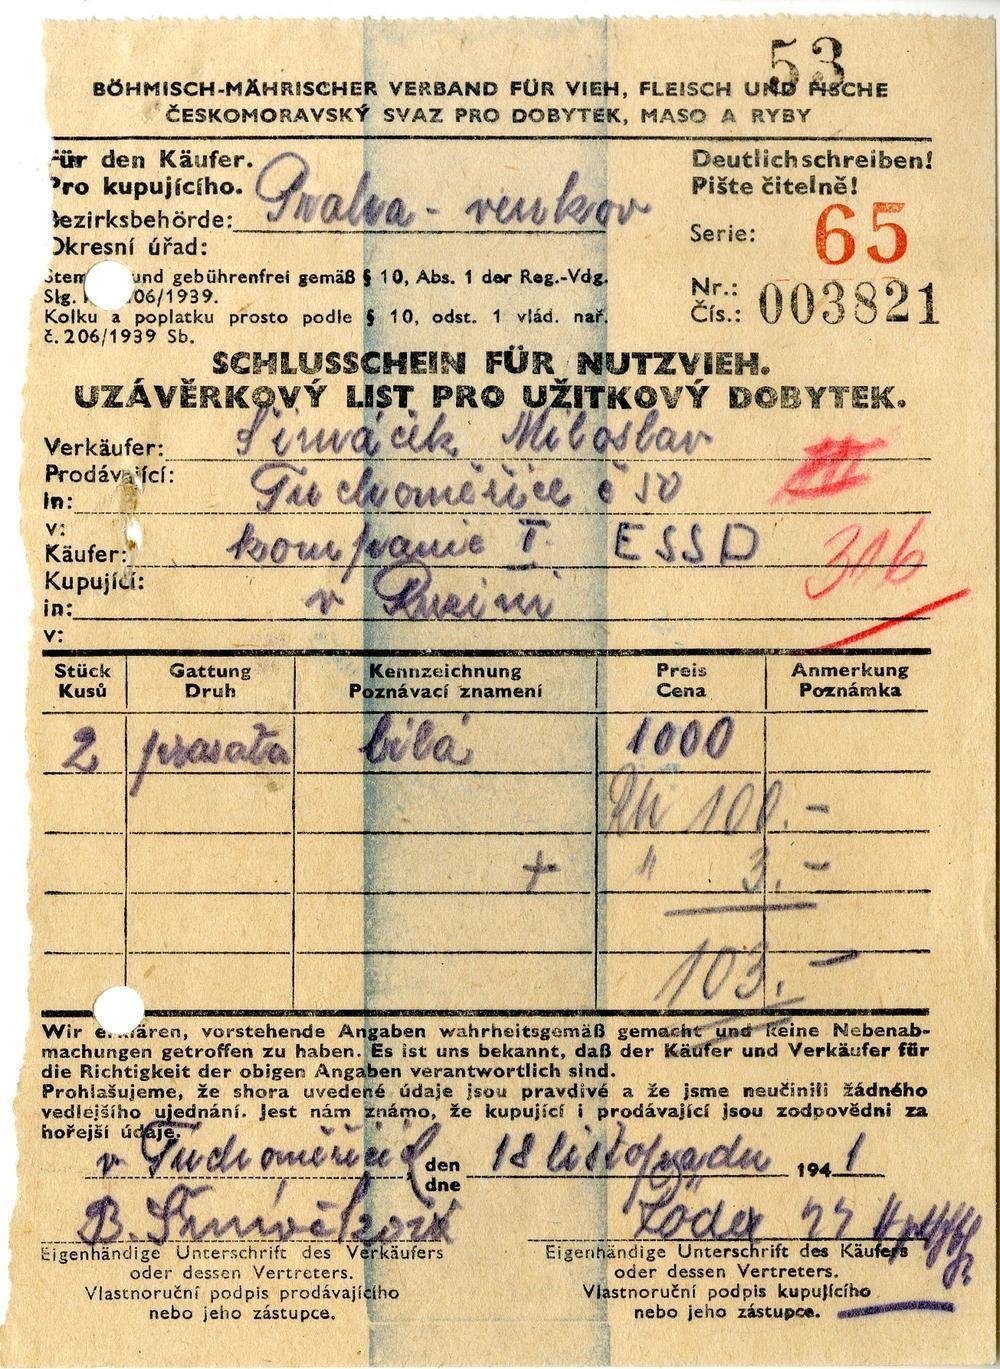 53
BÖHMISCH-MÄHRISCHER VERBAND FÜR VIEH, FLEISCH UND FISCHE
ČESKOMORAVSKÝ SVAZ PRO DOBYTEK, MASO A RYBY
Für den Käufer.
Pro kupujícího.
Deutlich schreiben!
Pište čitelně!
Bezirksbehörde: Praha - venkov
Okresní úřad:
Serie: 65
und gebührenfrei gemäß § 10, Abs. 1 der Reg.-Vdg.
Slg. 06/1939.
Kolku a poplatku prosto podle § 10, odst. 1 vlád. nař.
č. 206/1939 Sb.
Nr.:
Čís.: 003821
SCHLUSSCHEIN FÜR NUTZVIEH.
UZÁVĚRKOVÝ LIST PRO UŽITKOVÝ DOBYTEK.
Verkäufer: Miloslav
Prodávající:
in: Tuchoměřice č 50
v:
Käufer: kompanie I. ESSD
Kupující: 316
in: v Ruzini
v:
Stück Gattung Kennzeichnung Preis Anmerkung
Kusů Druh Poznávací znamení Cena Poznámka
2 prasata bílá 1000
100.-
+ " 3.-
103.-
Wir erklären, vorstehende Angaben wahrheitsgemäß gemacht und keine Nebenab-
machungen getroffen zu haben. Es ist uns bekannt, daß der Käufer und Verkäufer für
die Richtigkeit der obigen Angaben verantwortlich sind.
Prohlašujeme, že shora uvedené údaje jsou pravdivé a že jsme neučinili žádného
vedlejšího ujednání. Jest nám známo, že kupující i prodávající jsou zodpovědni za
hořejší údaje.
v Tuchoměřicích den 18 listopadu 1941
dne
B.
Eigenhändige Unterschrift des Verkäufers
oder dessen Vertreters.
Vlastnoruční podpis prodávajícího
nebo jeho zástupce.
Eigenhändige Unterschrift des Käufers
oder dessen Vertreters.
Vlastnoruční podpis kupujícího
nebo jeho zástupce.